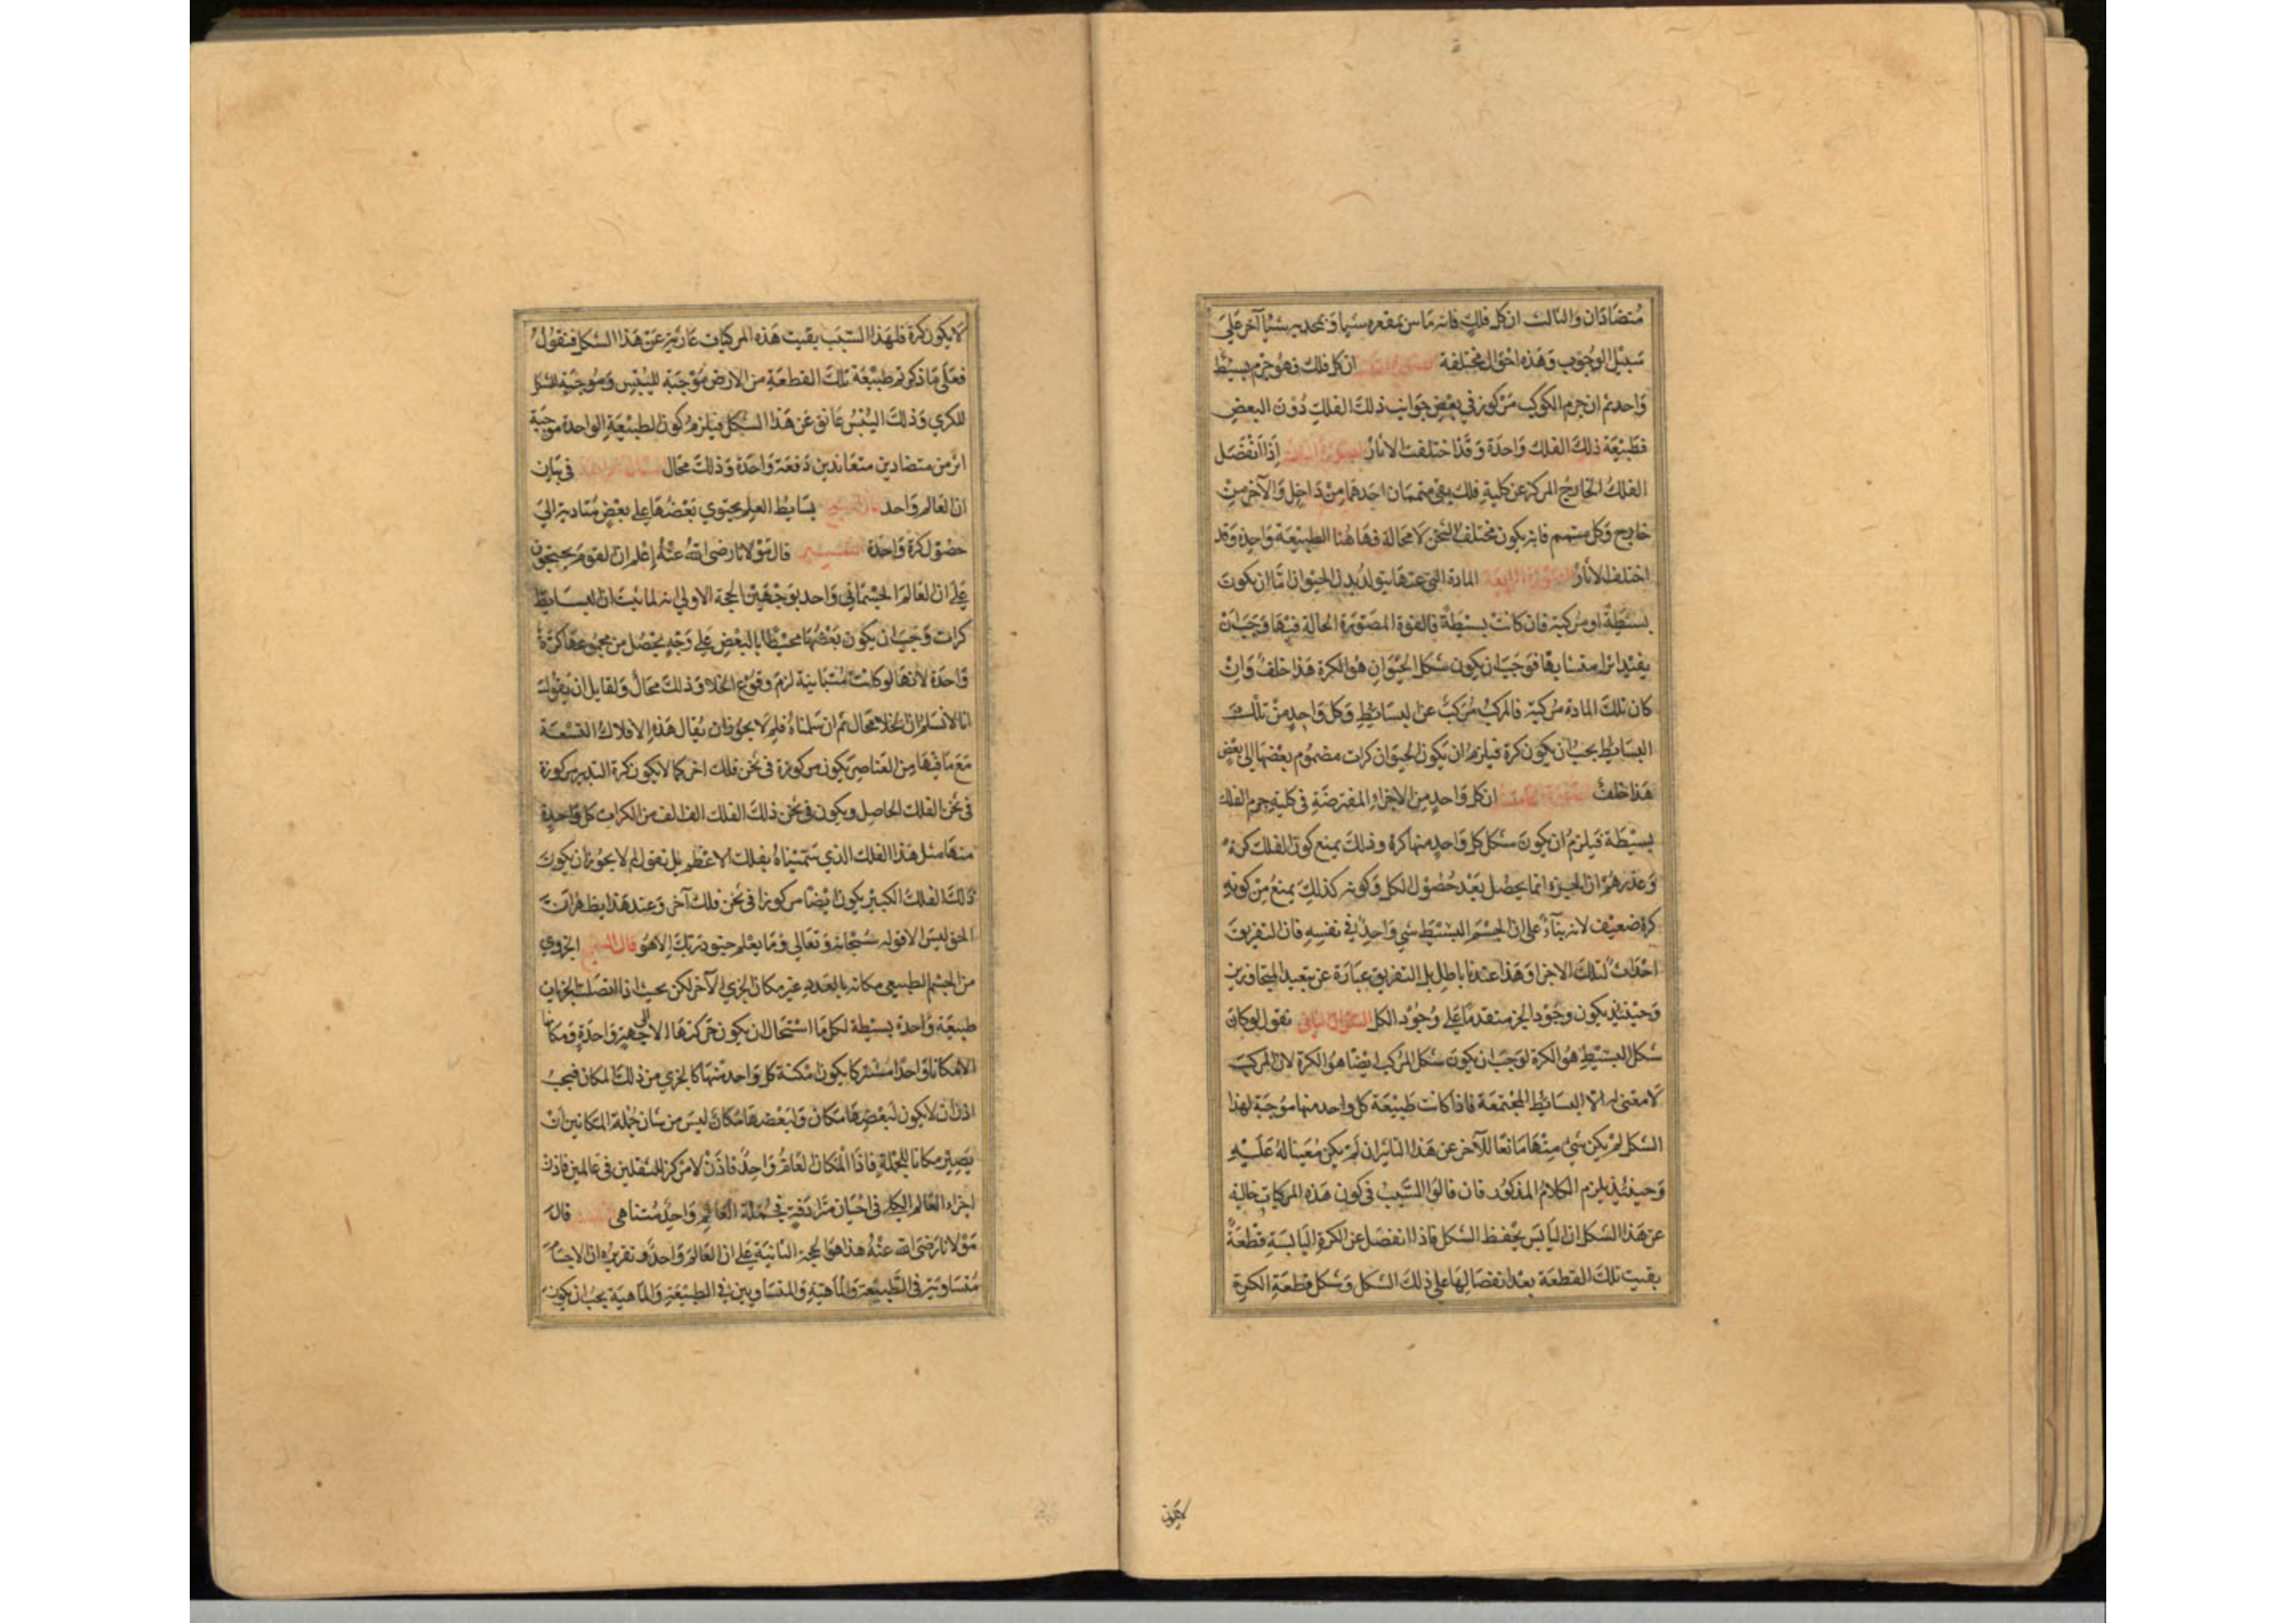 متضادان والثالث ان كل فلك فانه ماس بمقعره شيا وبمحدبه شيأ آخر على
سبيل الوجوب وهذه احوال مختلفة ان كل فلك فهو جرم بسيط
واحد ثم ان جرم الكوكب مركوز في بعض جوانب ذلك الفلك دون البعض
فطبيعة ذلك الفلك واحدة وقد اختلفت الاثار الصورة الثالثة اذا انفصل
الفلك الخارج المركز عن كلية فلك بقي متممان احدهما من داخل والآخر من
خارج وكل متمم فانه يكون مختلف الثخن لا محالة فهاهنا الطبيعة واحدة وقد
اختلف الاثار الصورة الرابعة المادة التي عنها يتولد بدن الحيوان اما ان يكون
بسيطة او مركبة فان كانت بسيطة فالقوة المصورة الحالة فيها وجب ان
يفيد اثرا متشابها فوجب ان يكون شكل الحيوان هو الكرة هذا خلف وان
كان تلك المادة مركبة فالمركب مركب عن البسايط وكل واحد من تلك
البسايط يجب ان يكون كرة فيلزم ان يكون الحيوان كرات مضموم بعضها الى بعض
هذا خلف الصورة الخامسة ان كل واحد من الاجزاء المفترضة في كلية جرم الفلك
بسيطة فيلزم ان يكون شكل كل واحد منها كرة وذلك يمنع كون الفلك كرة
وعذرهم ان الجزء انما يحصل بعد حصول الكل وكونه كذلك يمنع من كونه
كرة ضعيف لانه بناء على ان الجسم البسيط شي واحد في نفسه فان التفريق
احداث لتلك الاجزا وهذا عندنا باطل بل التفريق عبارة عن تبعيد المتجاورين
وحينئذ يكون وجود الجز متقدما على وجود الكل السؤال الثاني نقول لو كان
شكل البسيط هو الكرة لوجب ان يكون شكل المركب ايضا هو الكرة لان المركب
لا معنى له الا البسايط المجتمعة فاذا كانت طبيعة كل واحد منها موجبة لهذا
الشكل لم يكن شي منها مانعا للآخر عن هذا التاثير ان لم يكن معينا له عليه
وحينئذ يلزم الكلام المذكور فان قالوا السبب في كون هذه المركبات خالية
عن هذا الشكل ان اليابس يحفظ الشكل فاذا انفصل عن الكرة اليابسة قطعة
بقيت تلك القطعة بعد انفصالها على ذلك الشكل وشكل قطعة الكرة
لايكون
لا يكون كرة فلهذا السبب بقيت هذه المركبات عارية عن هذا الشكل فنقول
فعلى ما ذكرتم طبيعة تلك القطعة من الارض موجبة لليبس وموجبة للشكل
الكري وذلك اليبس عائق عن هذا الشكل فيلزم كون الطبيعة الواحدة موجبة
اثرين متضادين متعاندين دفعة واحدة وذلك محال في بيان
ان العالم واحد قال الشيخ بسايط العلم يحتوي بعضها على بعض متادية الى
حصول كرة واحدة التفسير قال مولانا رضي الله عنه إعلم ان القوم يحتجون
على ان العالم الجسماني واحد بوجهين الحجة الاولى انه لما ثبت ان البسايط
كرات وجب ان يكون بعضها محيطا بالبعض على وجه يحصل من مجموعها كرة
واحدة لانها لو كانت متباينة لزم وقوع الخلا وذلك محال ولقايل ان يقول
انا لا نسلم ان الخلا محال ثم ان سلمناه فلم لا يجوز ان يقال هذه الافلاك التسعة
مع ما فيها من العناصر يكون مركوزة في ثخن فلك اخر كما لا يكون كرة التدوير مركوزة
في ثخن الفلك الحاصل ويكون في ثخن ذلك الفلك الف الف من الكرات كل واحدة
منها مثل هذا الفلك الذي سميناه بفلك الاعظم بل نقول لم لا يجوز ان يكون
ذلك الفلك الكبير يكون ايضا مركوزا في ثخن فلك آخر وعند هذا يظهر ان
الحق ليس الا قوله سبحانه وتعالى وما يعلم جنود ربك الا هو قال الشيخ الجزوي
من الجسم الطبيعي مكانه بالعدد غير مكان الجزي الآخر لكن بحيث اذا اتصلت الجزيات
طبيعة واحدة بسيطة لكل ما استحال ان يكون حركتها الا الى جهة واحدة ومكانها
الا مكانا واحدا مشتركا يكون امكنة كل واحد منها كالجزي من ذلك المكان فيجب
اذن ان لا يكون لبعضها مكان ولبعضها مكان ليس من شان جملة المكانين ان
يصير مكانا للجملة فاذا المكان العام واحد فاذن لا مركز للثقلين في عالمين فاذن
اجزاء العالم الكل في احيان مترادفة في جملة العالم واحد متناهي قال
مولانا رضى الله عنه هذا هو الحجة الثانية على ان العالم واحد وتقريره ان الاجسام
متساوية في الطبيعة والماهية والمتساويين في الطبيعة والماهية يجب ان يكون